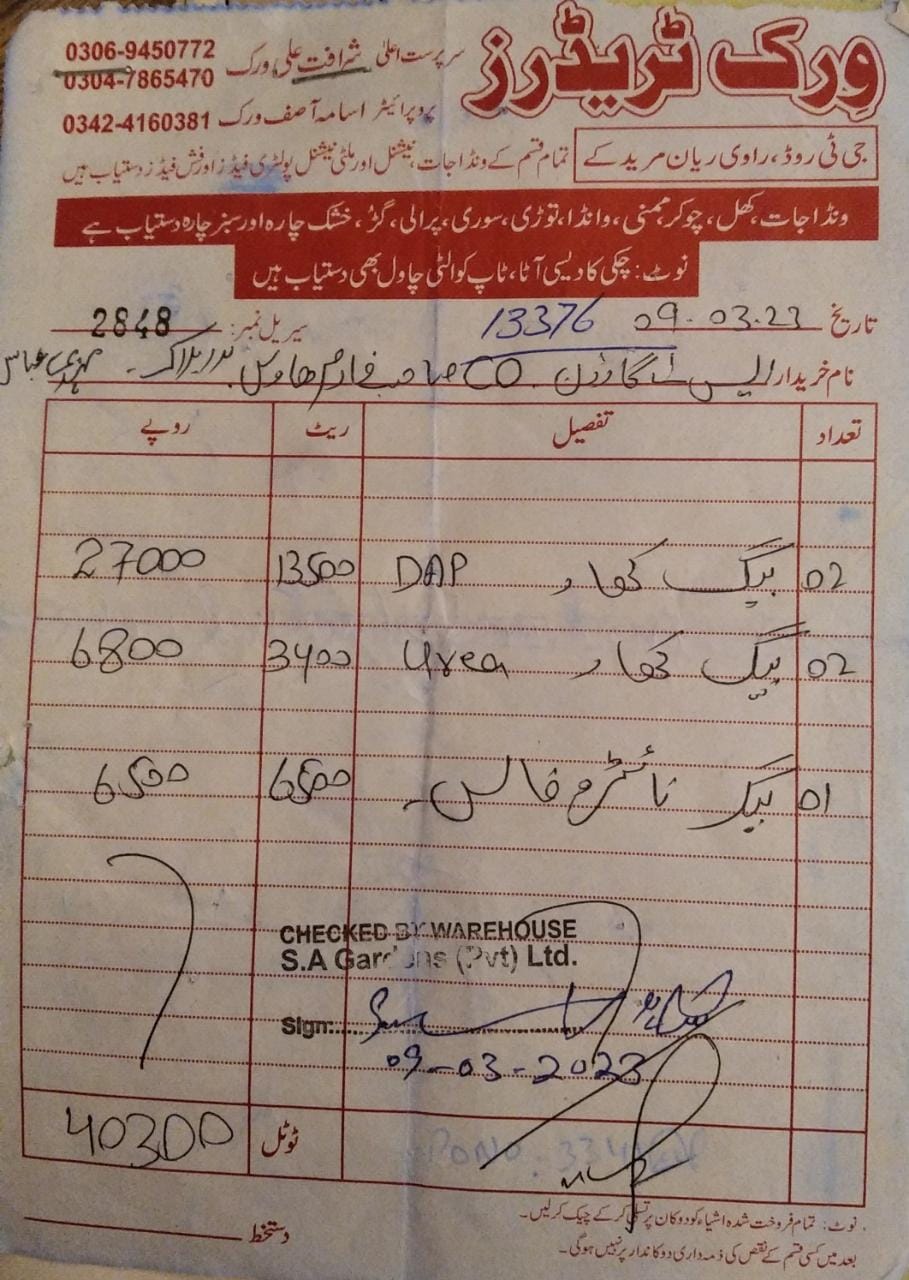 ورک ٹریڈرز
سرپرست اعلیٰ شرافت علی ورک 0306-9450772
0304-7865470
پروپرائیٹر اسامہ آصف ورک 0342-4160381
جی ٹی روڈ، راوی ریان مریدکے
تمام قسم کے ونڈا جات، نیشنل اور ملٹی نیشنل پولٹری فیڈز اور فش فیڈز دستیاب ہیں
ونڈا جات، کھل، چوکر، ممنی، وانڈا، توڑی، سوری، پرالی، گڑ، خشک چارہ اور سبز چارہ دستیاب ہے
نوٹ: چکی کا دیسی آٹا، ٹاپ کوالٹی چاول بھی دستیاب ہیں
تاریخ 09-03-23 13376 سیریل نمبر: 2848
نام خریدار ایس اے گارڈن۔ CO صاحب فارم ھاوس۔ بلاک۔ مہدی عباس
تعداد تفصیل ریٹ روپے
02 بیگ کھاد DAP 13500 27000
02 بیگ کھاد Urea 3400 6800
01 بیگ نائٹرو فاس۔ 6500 6500
CHECKED BY WAREHOUSE
S.A Gardens (Pvt) Ltd.
Sign:
09-03-2023
ٹوٹل 40300
PONO
نوٹ: تمام فروخت شدہ اشیاء کو دوکان پر تسلی کر کے چیک کر لیں۔
بعد میں کسی قسم کے نقص کی ذمہ داری دوکاندار پر نہیں ہوگی۔
دستخط